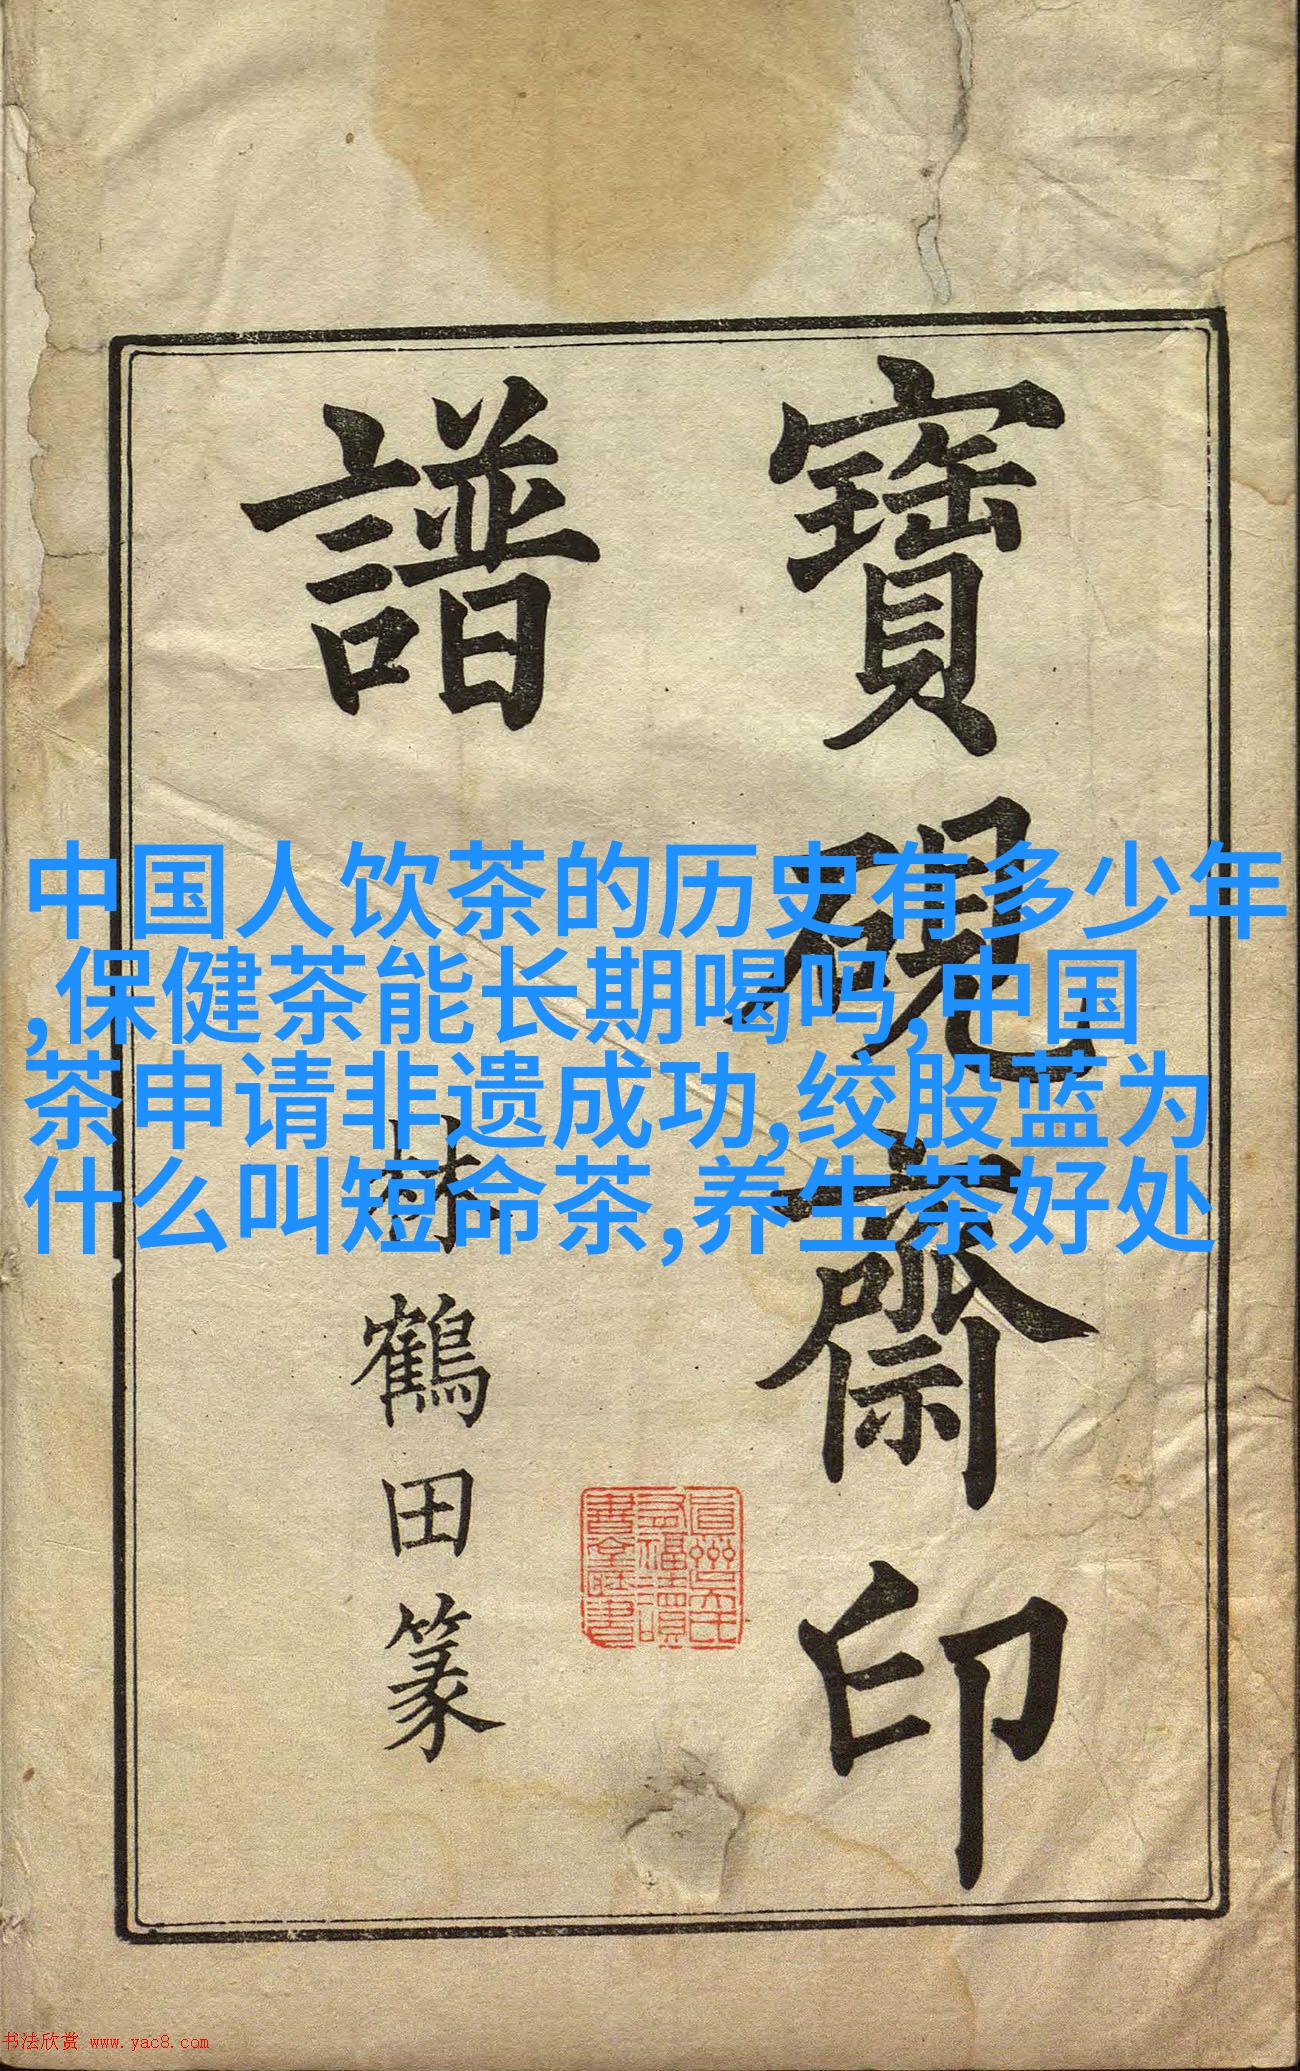 寶硯齋印
譜
林鶴田篆
中国人饮茶的历史有多少年
,保健茶能长期喝吗,中国
茶申请非遗成功,绞股蓝为
什么叫短命茶,养生茶好处
书法欣赏 www.yac8.com